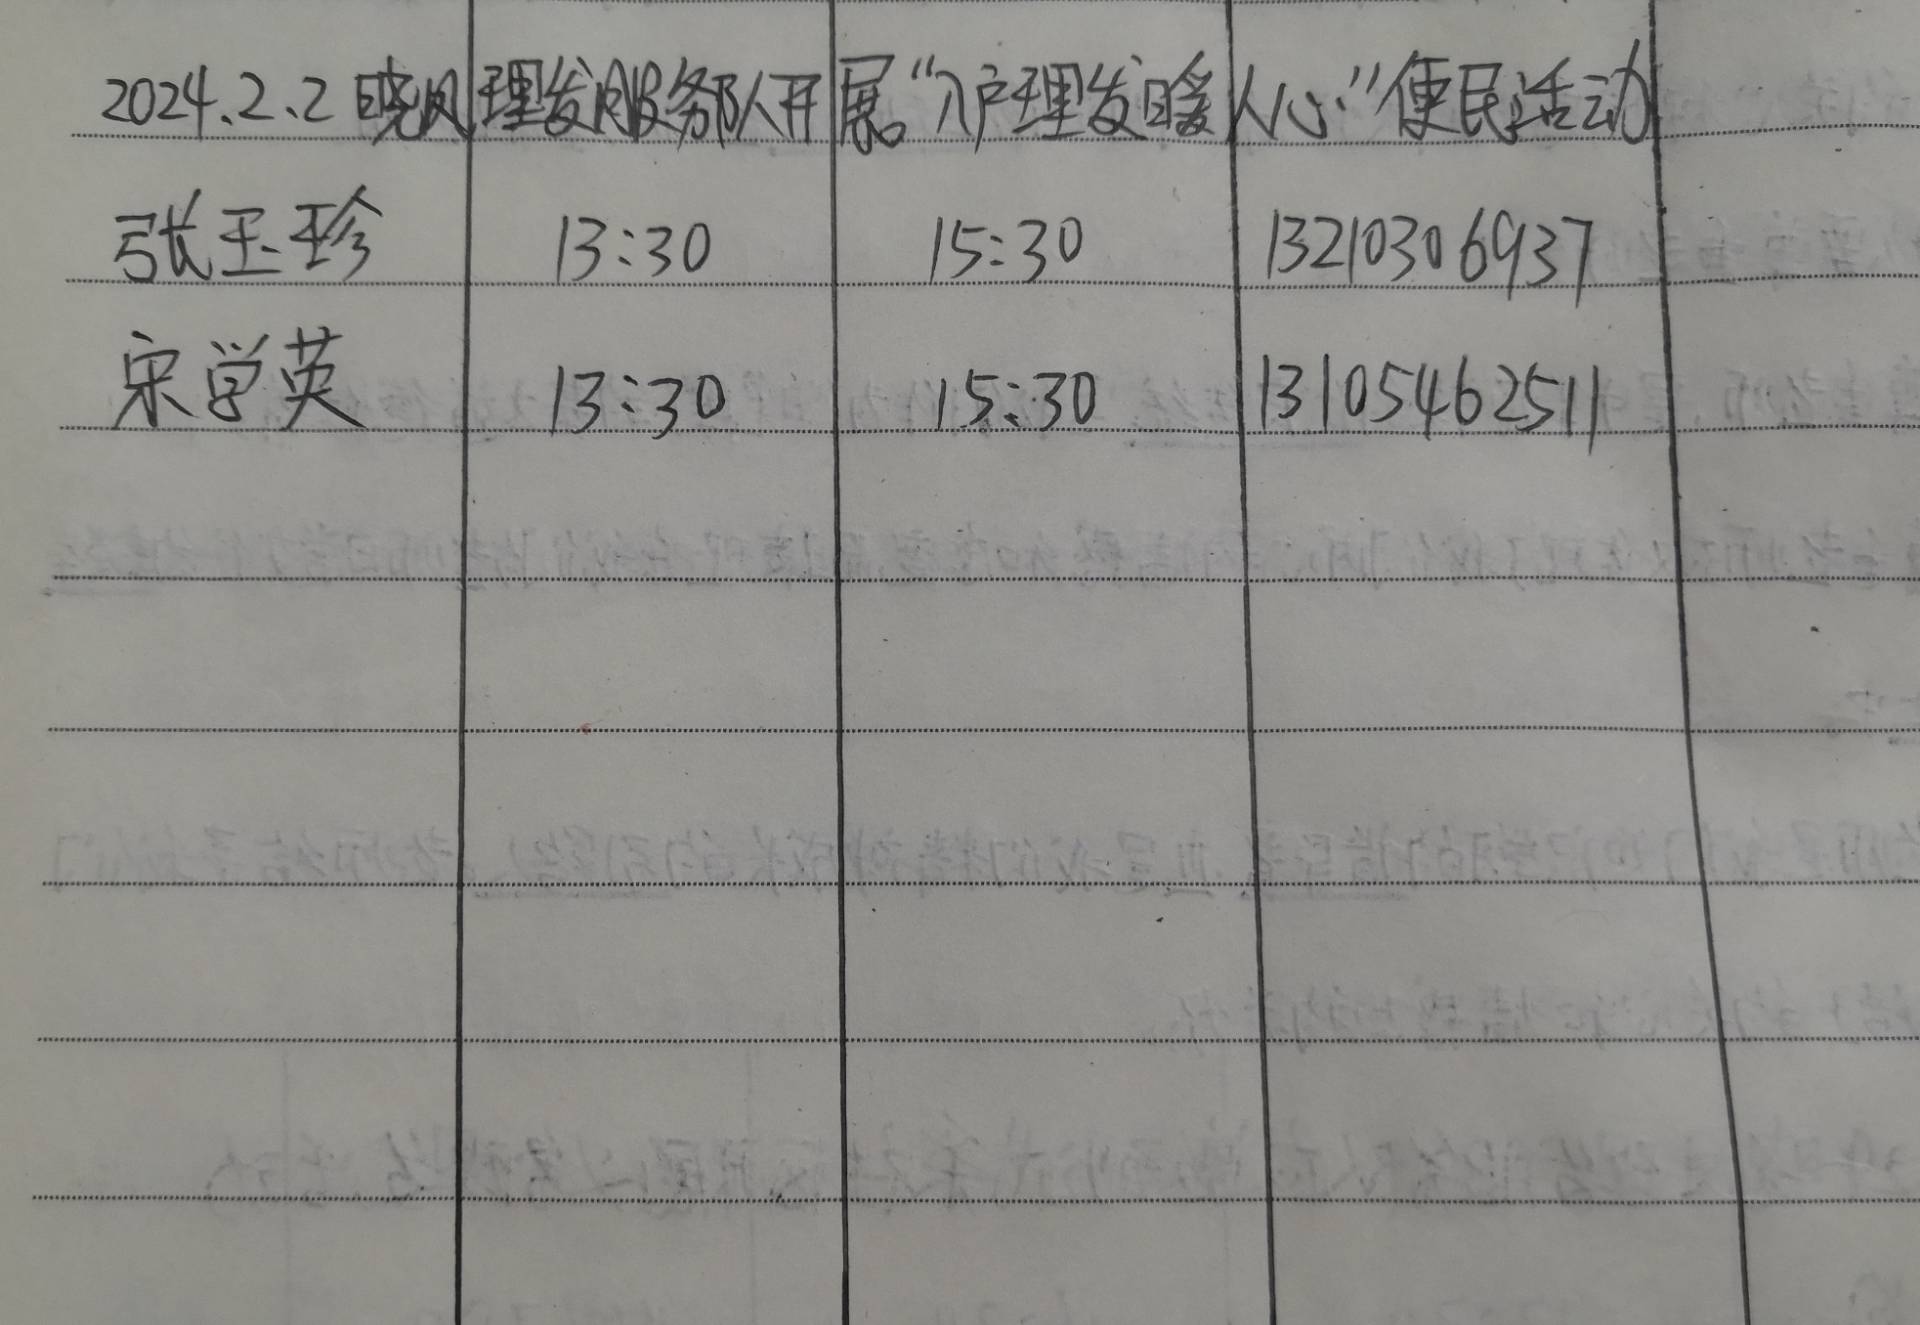 2024.2.2 晓风理发服务队开展“入户理发暖人心”便民活动
张玉珍 13:30 15:30 13210306937
宋学英 13:30 15:30 13105462511